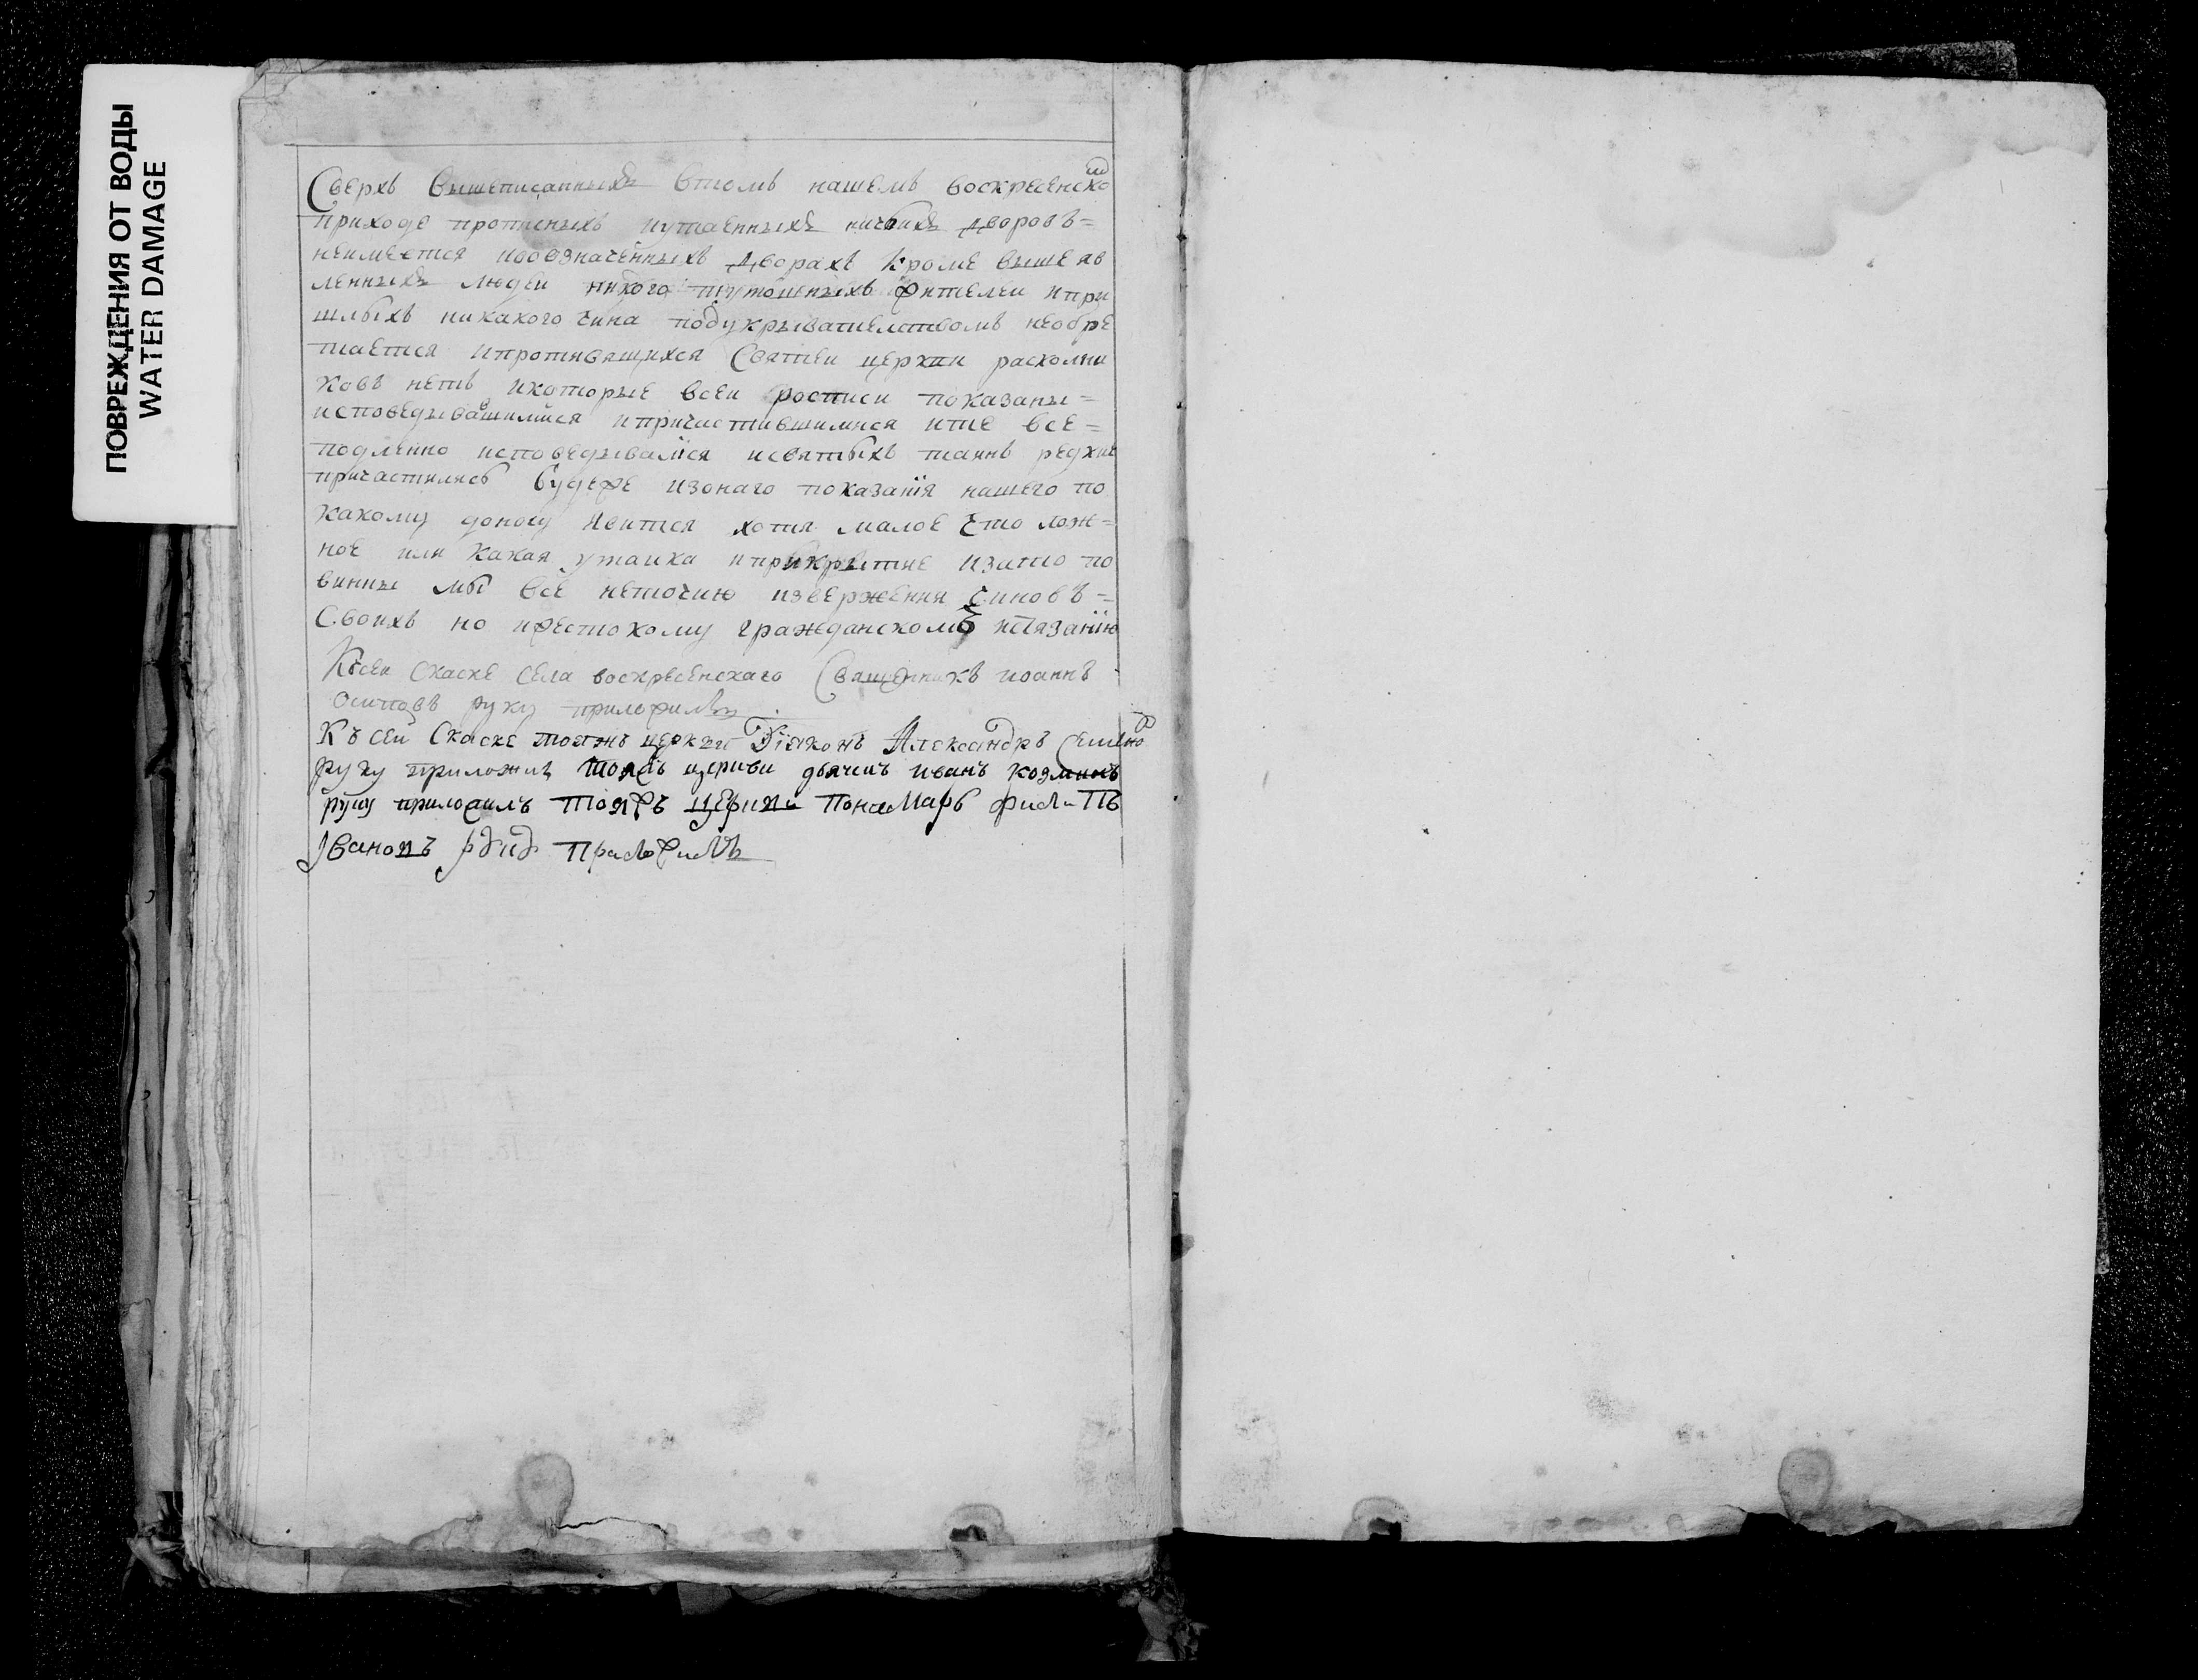 ПОВРЕЖДЕНИЯ ОТ ВОДЫ
WATER DAMAGE
Сверхъ вышеписанныхъ втомъ нашемъ воскресенско
приходе прописныхъ иутаенныхъ ничьихъ дворовъ=
неимеется ивоозначенныхъ дворахъ кроме вышеяв
ленныхъ людеи никого тутошныхъ жителеи ипри
шлыхъ никакого чина подукрывателствомъ необре
тается ипротивящихся Святеи церкви расколни
ковъ нетъ икоторые всеи росписи показаны=
исповедывавшимися ипричастившимися ите все=
подленно исповедывалися исвятыхъ таинъ
причастились будеже изонаго показанїя нашего по
какому доносу явится хотя малое что лож=
ное или какая утаика иприкрытие изато по
винны мы все неточию извержения чиновъ=
Своихъ но ижестокому гражданскому истязанїю
Ксеи скаске села воскресенскаго Священникъ иоаннъ
осиповъ руку приложилъ
Къ сеи Скаске тояжъ церкви Дїяконъ Александръ Семено
руку приложилъ тояжъ церкви дьячекъ иванъ козминъ
руку приложилъ тояжъ церкви понамарь филипъ
Ивановъ руку приложилъ